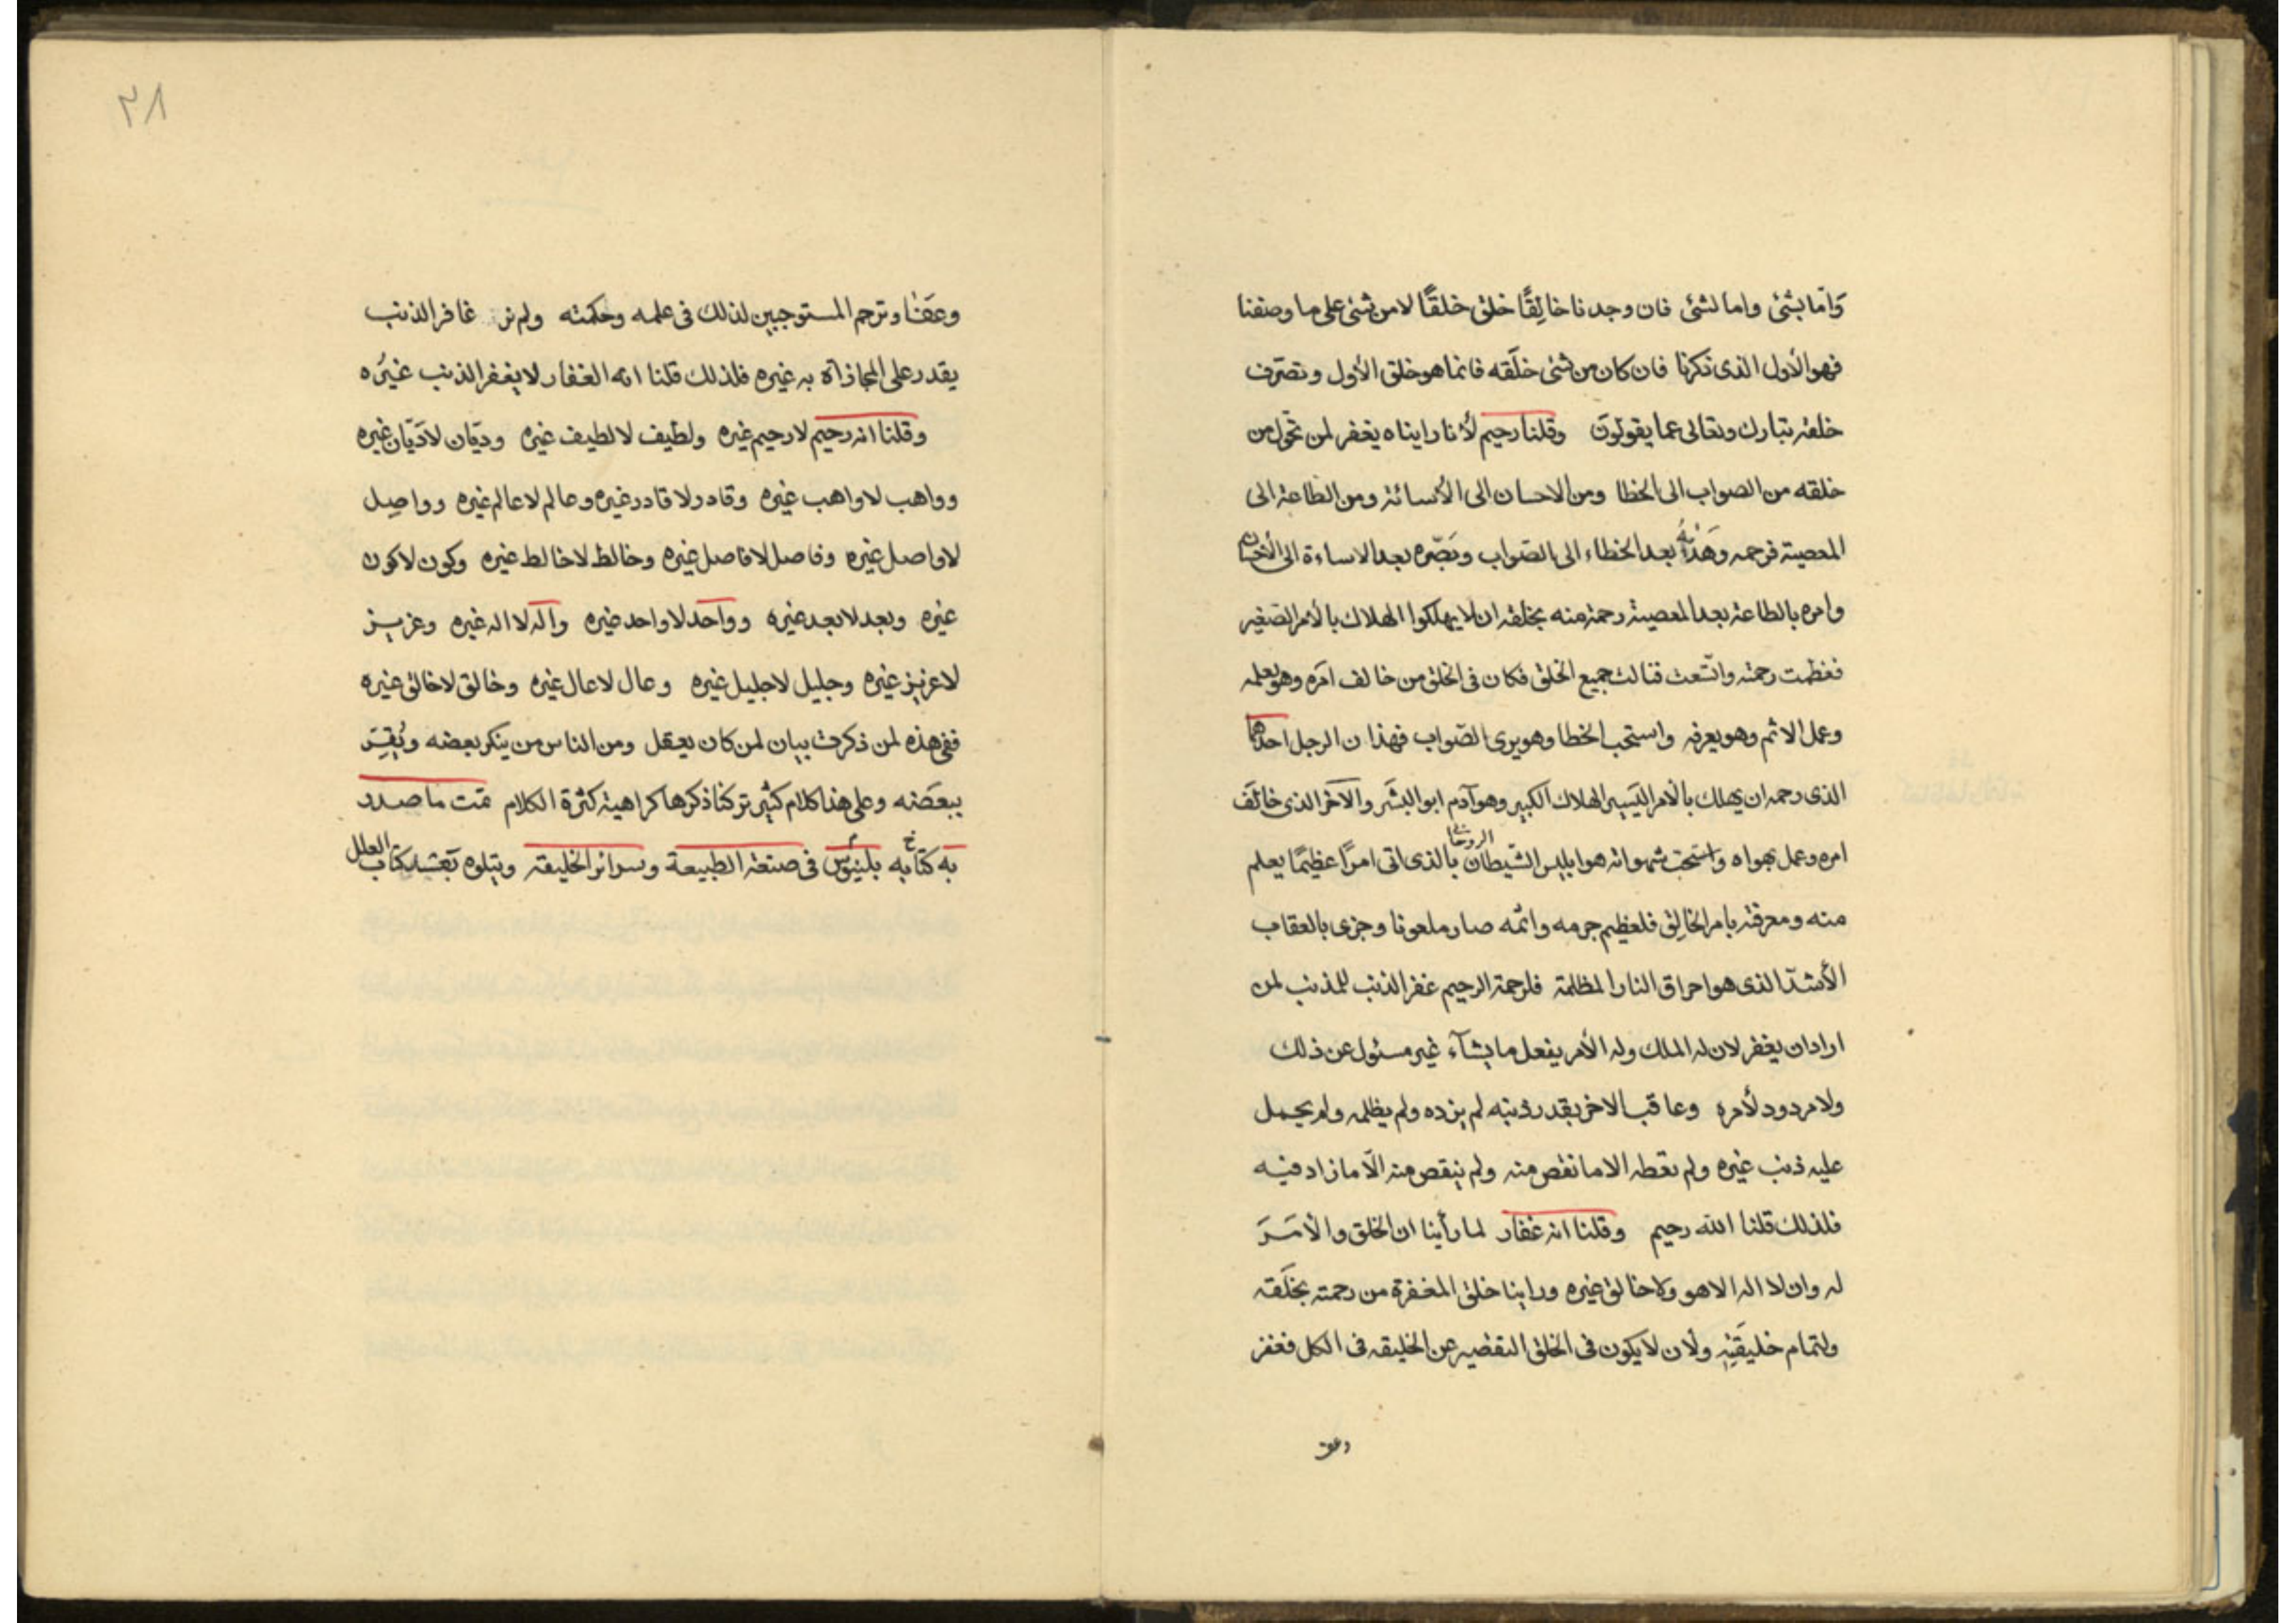 وَامّا بشئ واما لشئ فان وجدنا خالِقًا خلق خلقًا لا من شئ على ما وصفنا
فهو الأول الذى ذكرنا فان كان من شئ خلَقه فانما هو خلق الأول وتصرّف
خلقه تبارك وتعالى عما يقولونَ وقلنا رحيم لأنا راينا ه يغفر لمن تحوّل من
خلقه من الصواب الى الخطا ومن الاحسان الى الأسائة ومن الطاعة الى
المعصية فرحمه وهَدٰيهُ بعد الخطاء الى الصّواب وبَصّره بعد الاساءة الى الأحسان
وامره بالطاعة بعد المعصية رحمة منه بخلقه ان لا يهلكوا الهلاك بالأمر الصّغير
فعظمت رحمته واتّسعت فنالت جميع الخلق فكان فى الخلق من خالف امره وهو يعلمه
وعمل الاثم وهو يعرفه واستحب الخطا وهو يرى الصّواب فهذا ن الرجل احدهما
الذى رحمه ان يهلك بالأمر اليَسير الهلاك الكبير وهو آدم ابو البشَر والآخر الذى خالَف
امره وعمل بهواه واستحب شهواته هو ابليس الشّيطان بالذى اتى امرًا عظيمًا يعلم
منه ومعرفة بامر الخالِق فلعظيم جرمه واثمه صار ملعونا وجزى بالعقاب
الأشدّ الذى هو احراق النار المظلمة فلرحمة الرحيم غفر الذنب للمذنب لمن
اراد ان يغفر لان له الملك وله الأمر يفعل ما يشآء غير مسئول عن ذلك
ولا مردود لأمره وعاقب الاخر بقدر ذنبه لم يزده ولم يظلمه ولم يحمل
عليه ذنب غيره ولم يعطه الا ما نقص منه ولم ينقص منه الّا ما زاد فيه
فلذلك قلنا الله رحيم وقلنا انه غفار لما رأينا ان الخلق والأمرَ
له وان لا اله الا هو ولا خالق غيره وراينا خلق المغفرة من رحمته بخلَقه
ولتمام خليقَتِه ولأن لا يكون فى الخلق التقصير عن الخليقه فى الكل فغفر
وعف
٢٨
وعَفٰا وترحم المستوجبين لذلك فى علمه وحكمته ولم نر غافر الذنب
يقدر على المجازاة به غيره فلذلك قلنا انه الغفار لا يغفر الذنب غيرُه
وقلنا انه رحيم لا رحيم غيره ولطيف لا لطيف غيره وديّان لا دَيّان غيره
وواهب لا واهب غيره وقادر لا قادر غيره وعالم لا عالم غيره وواصِل
لا واصل غيره وفاصل لا فاصل غيره وخالط لا خالط غيره وكون لا كون
غيره وبعد لا بعد غيره وواحد لا واحد غيره واله لا اله غيره وعزيز
لا عزيز غيره وجليل لا جليل غيره وعال لا عال غيره وخالق لا خالق غيره
ففى هذه لمن ذكرت بيان لمن كان يعقل ومن الناس من ينكر بعضه ويُقِرّ
ببعضَه وعلى هذا كلام كثير تركنا ذكرها كراهية كثرة الكلام تمت ما صدر
به كتابه بلينوس فى صنعة الطبيعة وسرائر الخليقة ويتلوه كتاب العلل